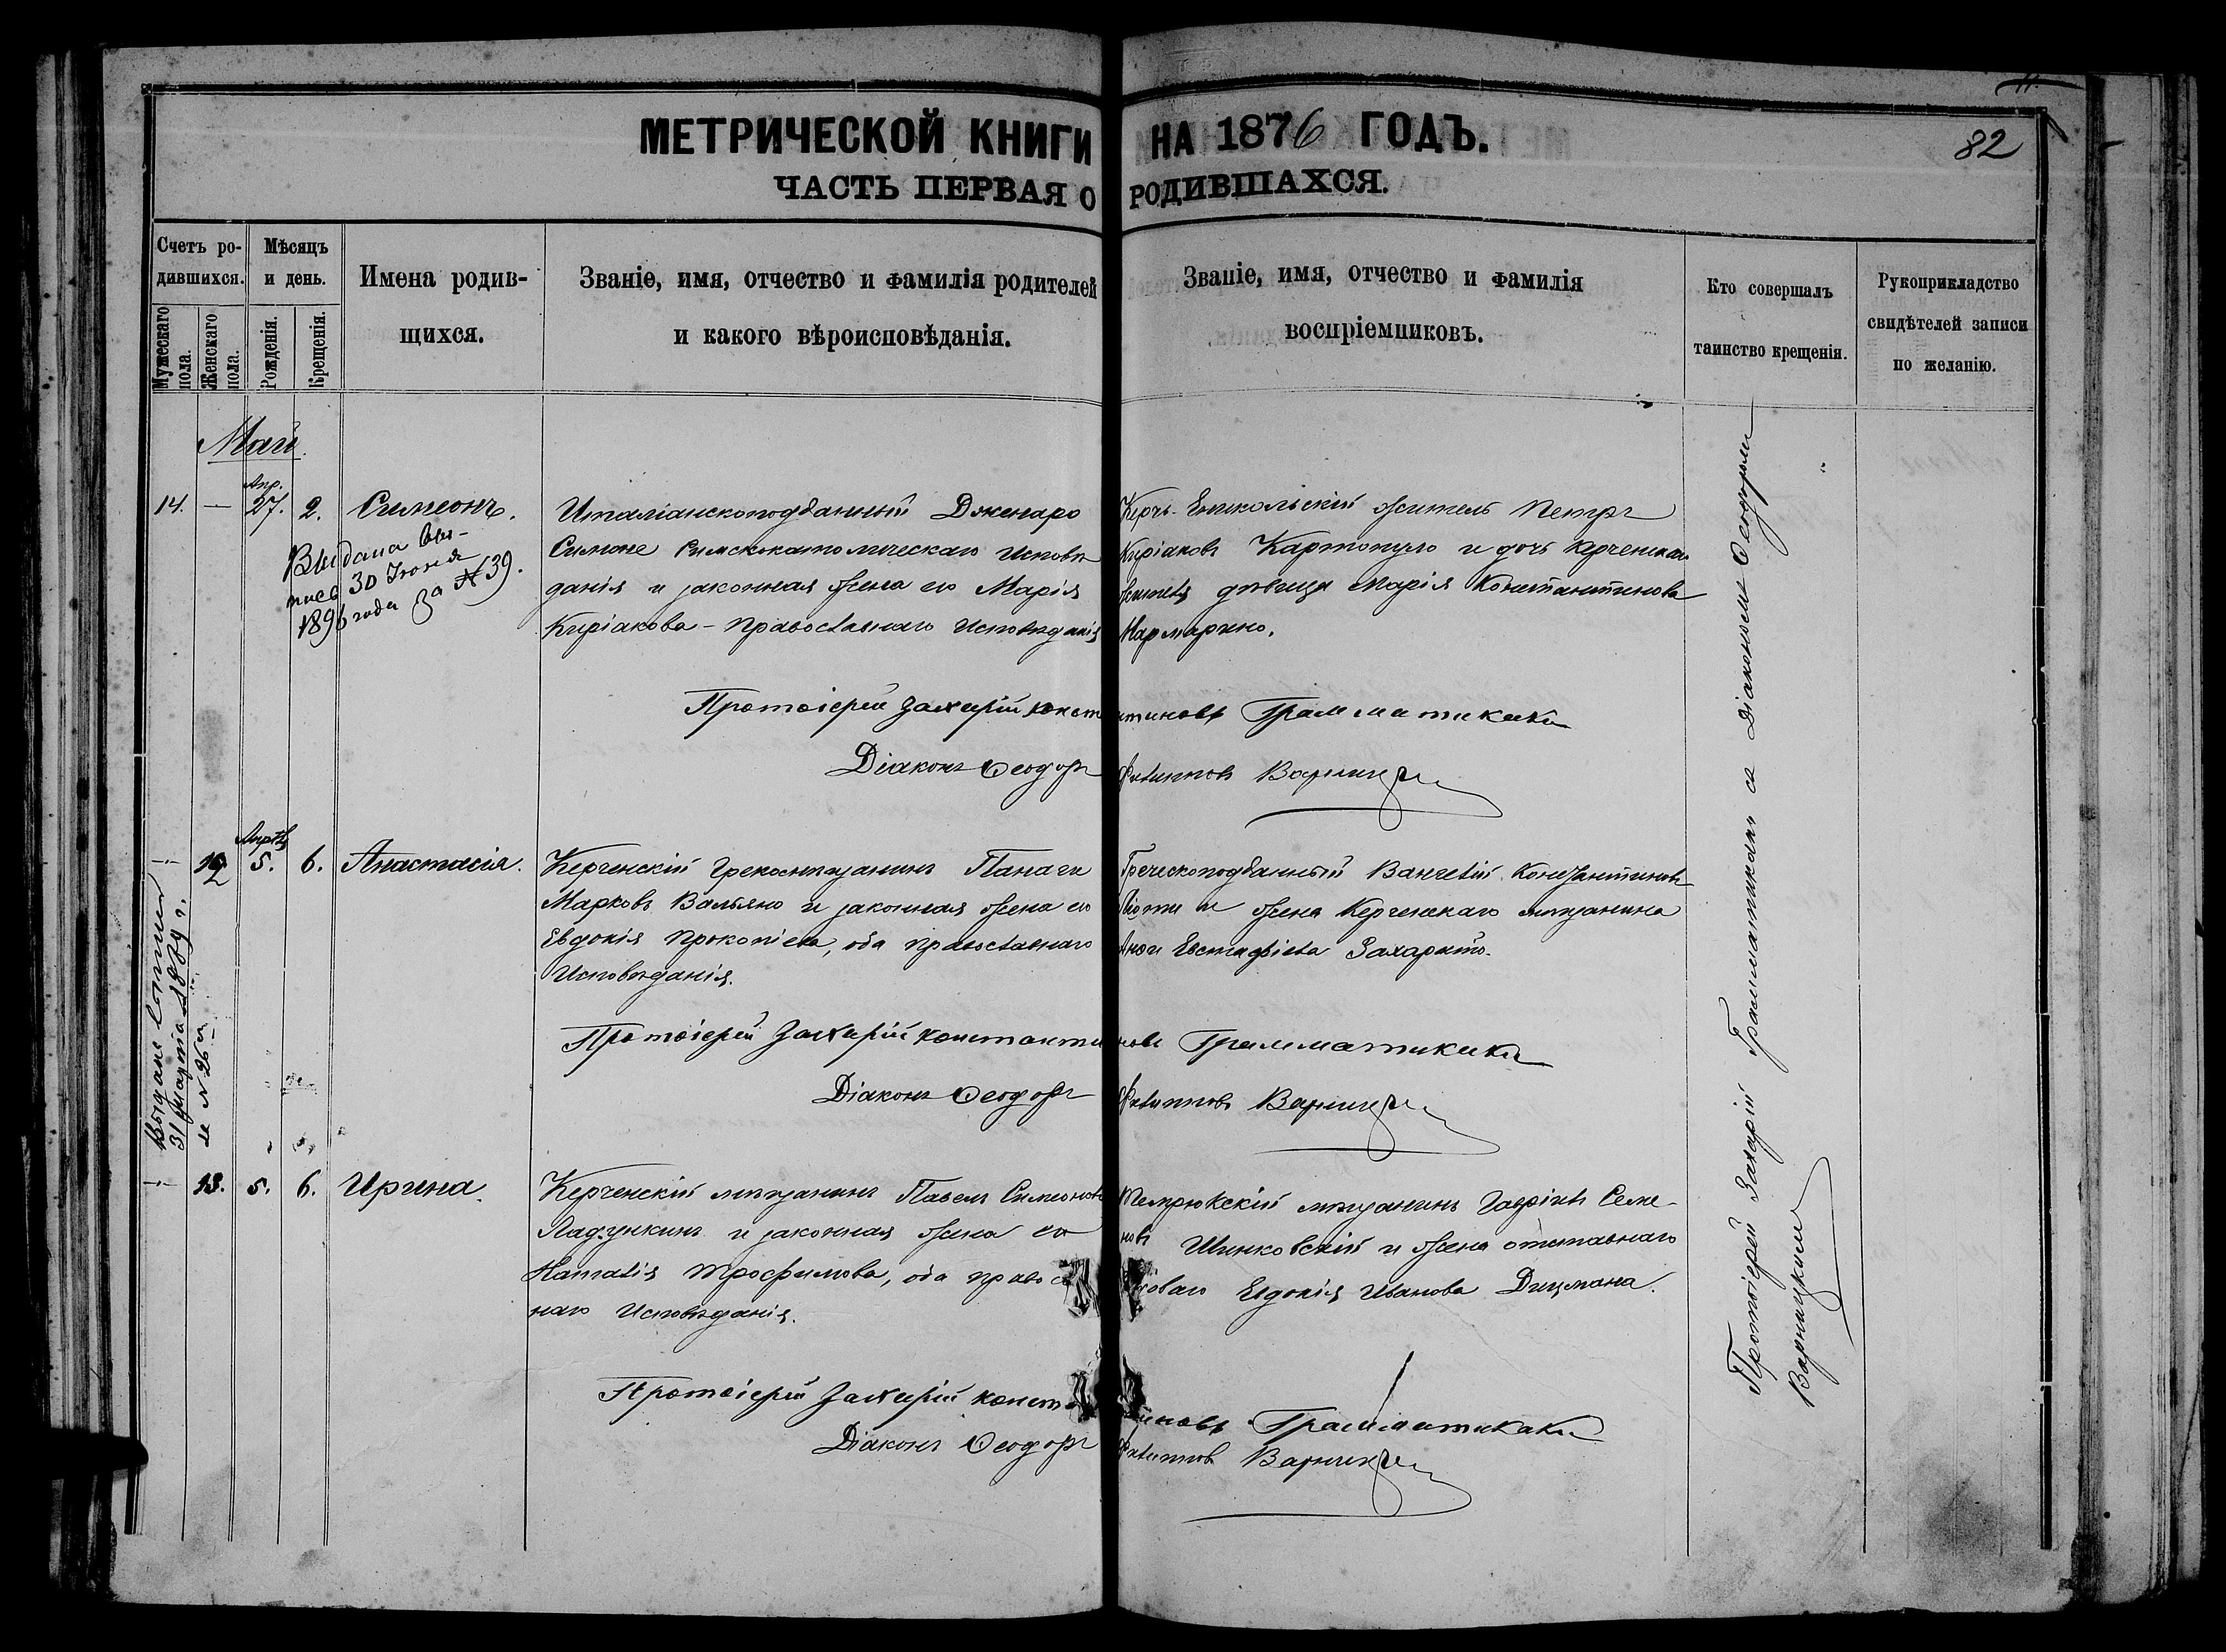 МЕТРИЧЕСКОЙ КНИГИ НА 1876 ГОДЪ.
82
ЧАСТЬ ПЕРВАЯ О РОДИВШАХСЯ.
Счетъ ро-
дившихся.
Мужескаго пола.
Женскаго пола.
Мѣсяцъ
и день.
Рожденія.
Крещенія.
Имена родив-
щихся.
Званіе, имя, отчество и фамилія родителей
и какого вѣроисповѣданія.
Званіе, имя, отчество и фамилія
воспріемниковъ.
Кто совершалъ
таинство крещенія.
Рукоприкладство
свидѣтелей записи
по желанію.
Май
14. — Апр. 27. 2. Симеонъ.
Выдана вы-
пись 30 Іюня
1896 года за № 39.
Италіанскоподданный Дженаро
Симоне Римскокатолическаго Исповѣ
данія и законная жена его Марія
Киріакова - православнаго Исповѣданія
Керчь-Еникольскій житель Петръ
Киріаковъ Картопуло и дочь Керченскаго
жителя дѣвица Марія Константинова
Мармарино.
Протоіерей Захарій Константиновъ Грамматикаки
Діаконъ Ѳеодоръ Филипповъ Варницкій
12 Апрѣля 5. 6. Анастасія.
Керченскій грекомѣщанинъ Панаги
Марковъ Вальяно и законная жена его
Евдокія Прокопіева, оба православнаго
Исповѣданія.
Греческоподданный Вангелій Константиновъ
и жена Керченскаго мѣщанина
Евстафіева Захарато.
Выдано
31 марта 1889 г.
за № 26 м
Протоіерей Захарій Константиновъ Грамматикаки
Діаконъ Ѳеодоръ Филипповъ Варницкій
13. 5. 6. Ирина.
Керченскій мѣщанинъ Павелъ Симеоновъ
Ладункинъ и законная жена его
Наталія Трофимова, оба правос
наго Исповѣданія.
Темрюкскій мѣщанинъ Гавріилъ Семе-
новъ Шинковскій и жена отставнаго
Евдокія Иванова Дицмана.
Протоіерей Захарій Константиновъ Грамматикаки
Діаконъ Ѳеодоръ Филипповъ Варницкій
Протоіерей Захарій Грамматикаки съ Діакономъ Ѳеодоромъ
Варницкимъ